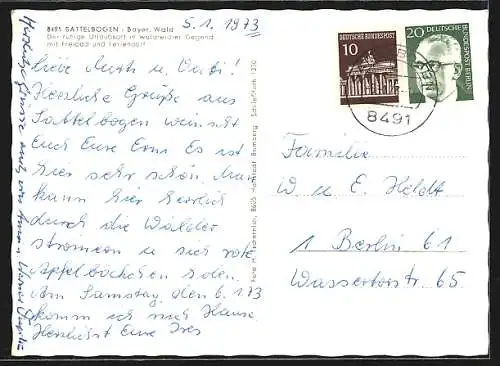 8491 SATTELBOGEN : Bayer. Wald
Der ruhige Urlaubsort in waldreicher Gegend
mit Freibad und Feriendorf
5.1.1973
Liebe Mutti u. Vati!
Herzliche Grüße aus
Sattelbogen wünscht
Euch Eure Es ist
hier sehr schön. Man
kann hier herrlich
durch die Wälder
stromern u sich rote
Apfelbäckchen holen.
Am Samstag, den 6.1.73
komm ich nach Hause.
Herzlichst Eure
Herzliche Grüsse auch von
Foto H. Hallstadt Bamberg
10 DEUTSCHE BUNDESPOST
20 DEUTSCHE BUNDESPOST BERLIN
8491
Familie
W u E. Heldt
1 Berlin 61
Wassertorstr 65